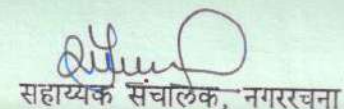 सहाय्यक संचालक, नगररचना